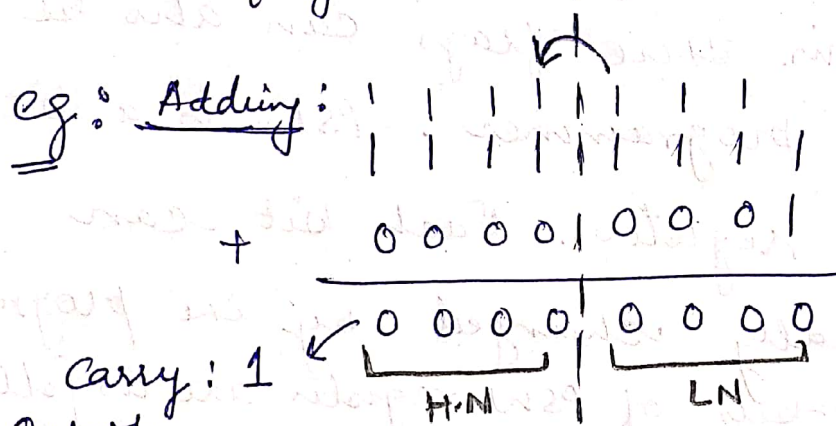 eg: Adding: 1 1 1 1 1 1 1
1 1 1 1 1 1 1 1
+ 0 0 0 0 0 0 0 1
0 0 0 0 0 0 0 0
Carry: 1 H.N LN